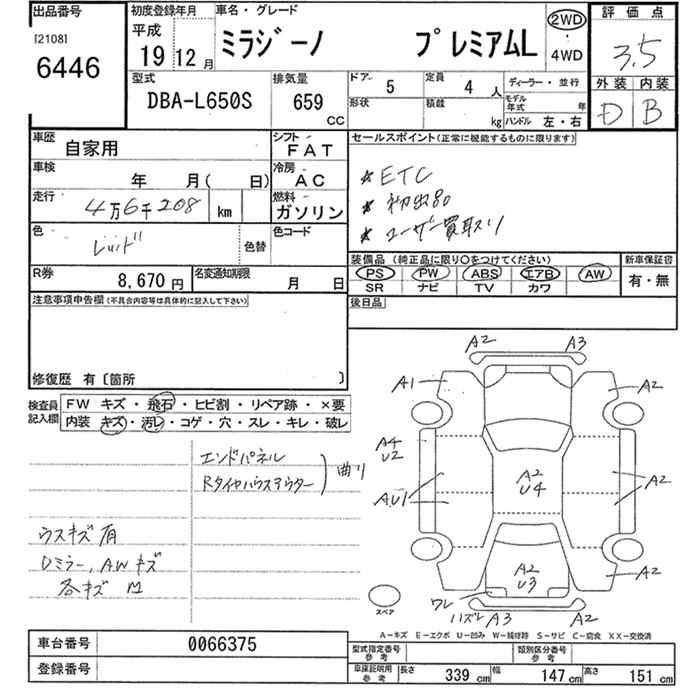 出品番号
[2108]
6446
初度登録年月
平成
19 12 月
車名・グレード
ミラジーノ プレミアムL
2WD
4WD
評価点
3.5
外装 内装
D B
型式
DBA-L650S
排気量
659
CC
ドア
5
定員
4 人
ディーラー・並行
形状
積載
kg
モデル
年式
年
ハンドル 左・右
車歴
自家用
シフト
FAT
車検
年 月( 日)
冷房
AC
走行
4万6千208
km
燃料
ガソリン
色
色替
色コード
R券
8,670 円
名変通知期限
月 日
セールスポイント(正常に機能するものに限ります)
* ETC
* 初出品
* ユーザー買取り
装備品 (純正品に限り○をつけてください)
PS PW ABS エアB AW
SR ナビ TV カワ
新車保証書
有・無
後日品
注意事項申告欄(不具合内容等は具体的に記入して下さい)
修復歴 有〔箇所 〕
検査員
記入欄
FW キズ・飛石・ヒビ割・リペア跡・×要
内装 キズ・汚レ・コゲ・穴・スレ・キレ・破レ
エンドパネル
Rタイヤハウスアウター
曲り
ウスキズ有
Dミラー, AWキズ
各キズ M
A2 A3
A1 A2
A4
U2
A2
U4
AU1 A2
A2
U3
A2
ワレ
ハズレ A3 A2
スペア
A－キズ E－エクボ U－凹み W－補修跡 S－サビ C－腐食 XX－交換済
車台番号
0066375
登録番号
型式指定番号
参考
類別区分番号
参考
車庫証明用
参考
長さ 339 cm 幅 147 cm 高さ 151 cm